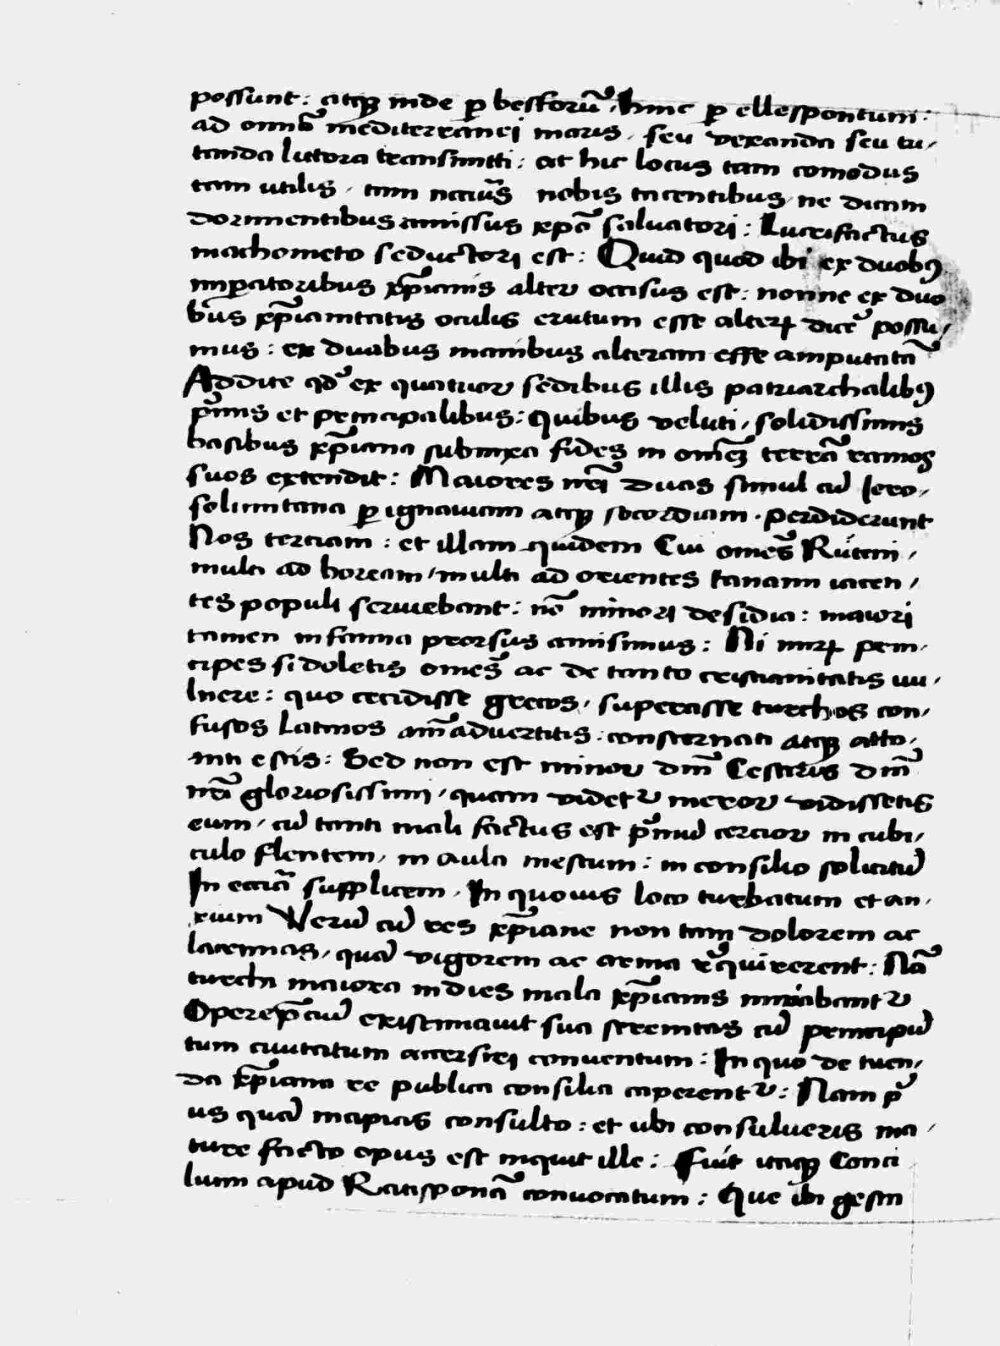 possunt: atqꝫ inde ꝑ besforū, hinc ꝑ ellespontum:
ad omīs mediterranei maris, seu vexanda seu tu,
tanda litora transmitti: at hic locus tam comodus
tam utilis, tam nccīus nobis tacentibus, ne dicam
dormientibus amissus xp̄o salvatori: Lucrifactus
machometo seductori est: Quid quod ibi ex duobꝫ
imꝑatoribus xp̄ianis alter occisus est: nonne ex duo
bus xp̄ianitatis oculis erutum esse alterꝝ dice possu,
mus: ex duabus manibus alteram esse amputatā
Addite qd̄ ex quatuor sedibus illis patriarchalibꝫ
p̄mis et principalibus: quibus veluti, solidissimis
basibus xp̄iana subnixa fides in omēꝫ terrā ramos
suos extendit: Maiores nr̄i duas simul cū Iero,
solimitana ꝑ ignaviam atqꝫ socordiam. perdiderunt
Nos terciam: et illam quidem Cui omēs Rúteni,
multi ad boream, multi ad orientes tanaim iacen,
tes populi serviebant: nō minori desidia: maiori
tamen infamia prorsus amisimus: Ni mirꝝ prin,
cipes si doletis omēs ac de tanto cristianitatis vu,
lnere: quo cecidisse grecos, superasse turchos con,
fusos Latinos aīmadvertitis: consternati atqꝫ atto,
niti estis: Sed non est minor dn̄i Cesaris dn̄i
nr̄i gloriosissimi, quam videtᷣ meror vidissetis
eum, cū tanti mali factus est p̄mū cercior in cubi,
culo flentem, in aula mestum: in consilio solicitū
In ecciā supplicem, In quovis loco turbatum et an,
xium Verū cū res xp̄iane non tam dolorem ac
lacrimas, quā vigorem ac arma rᷣquirerent: Nā
turchi maiora indies mala xp̄ianis minabantᷣ
Operep̄ciū existimavit sua serenitas cū principū
tum civitatum accersiri conventum: In quo de tuen,
da xp̄iana re publica consilia caperentᷣ: Nam p̄
us quā incipias consulto: et ubi consulueris ma,
ture facto opus est inquit ille: Fuit itaqꝫ Conci
lium apud Ratisponā convocatum: Que ibi gesta